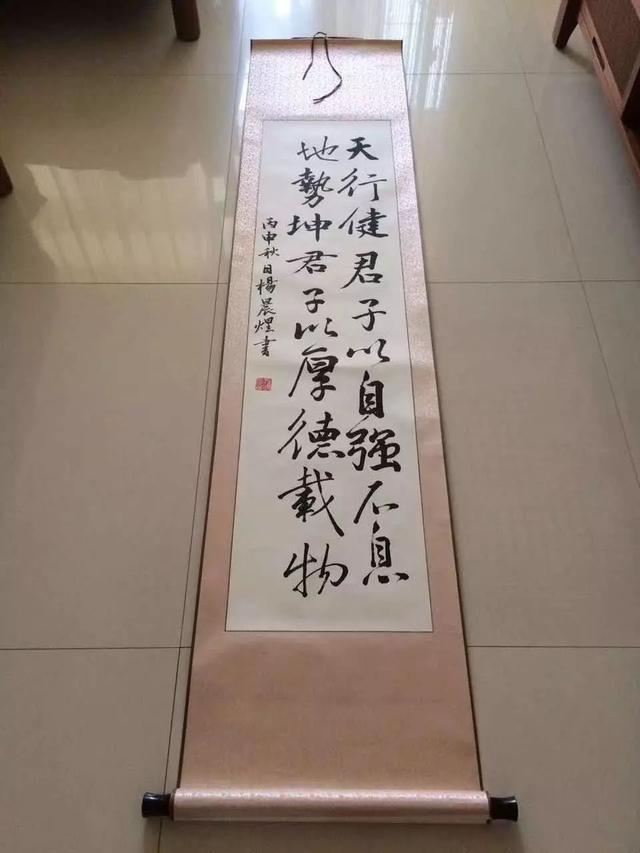 天行健君子以自强不息
地勢坤君子以厚德載物
丙申秋日楊晨煜書